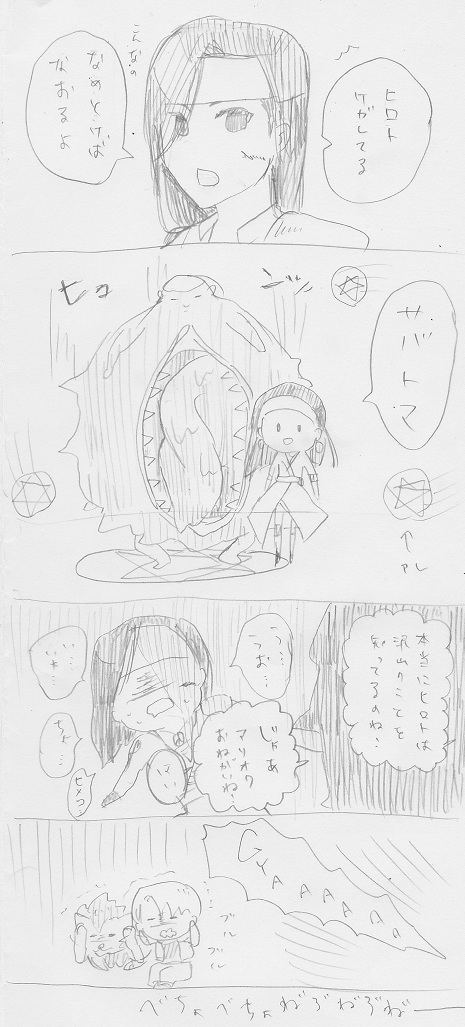 ヒロト
ケガしてる
こんなの
なめとけば
なおるよ
ザバトマ
ヒョ
↑
アレ
本当にヒロトは
沢山のことを
知ってるのね!
うっ…
うお…
じゃあ
マリオク
おねがいね!
はい
いや…
ちが…
ヒメコ…
GYAAAAAA
ブル
ブル
べちょべちょねぞねぞねー